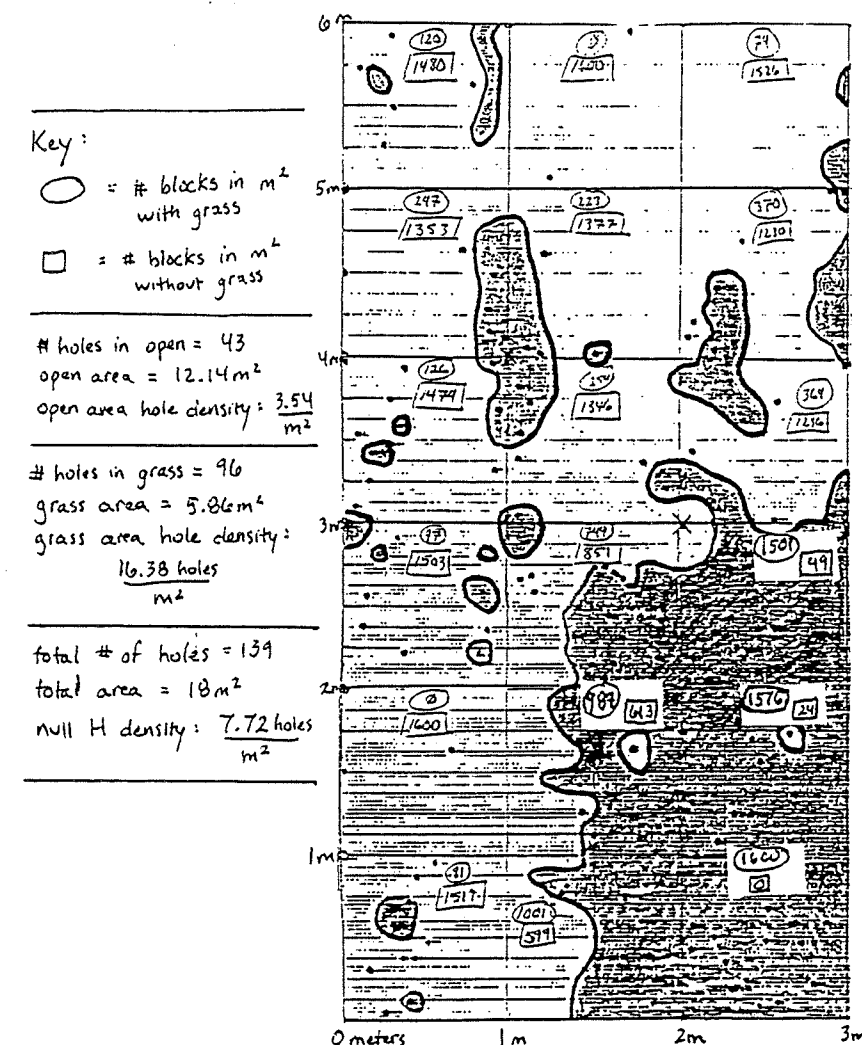 Key:
= # blocks in m²
with grass
= # blocks in m²
without grass
# holes in open = 43
open area = 12.14m²
open area hole density: 3.54
m²
# holes in grass = 96
grass area = 5.86m²
grass area hole density:
16.38 holes
m²
total # of holes = 139
total area = 18m²
null H density: 7.72 holes
m²
6m
120
1480
1600
74
1526
5m
247
1353
223
1377
370
1230
4m
126
1474
1346
364
1236
3m
97
1503
749
851
1501
49
2m
0
1600
987
613
1576
24
1m
1600
0
81
1519
1001
599
0 meters
1m
2m
3m